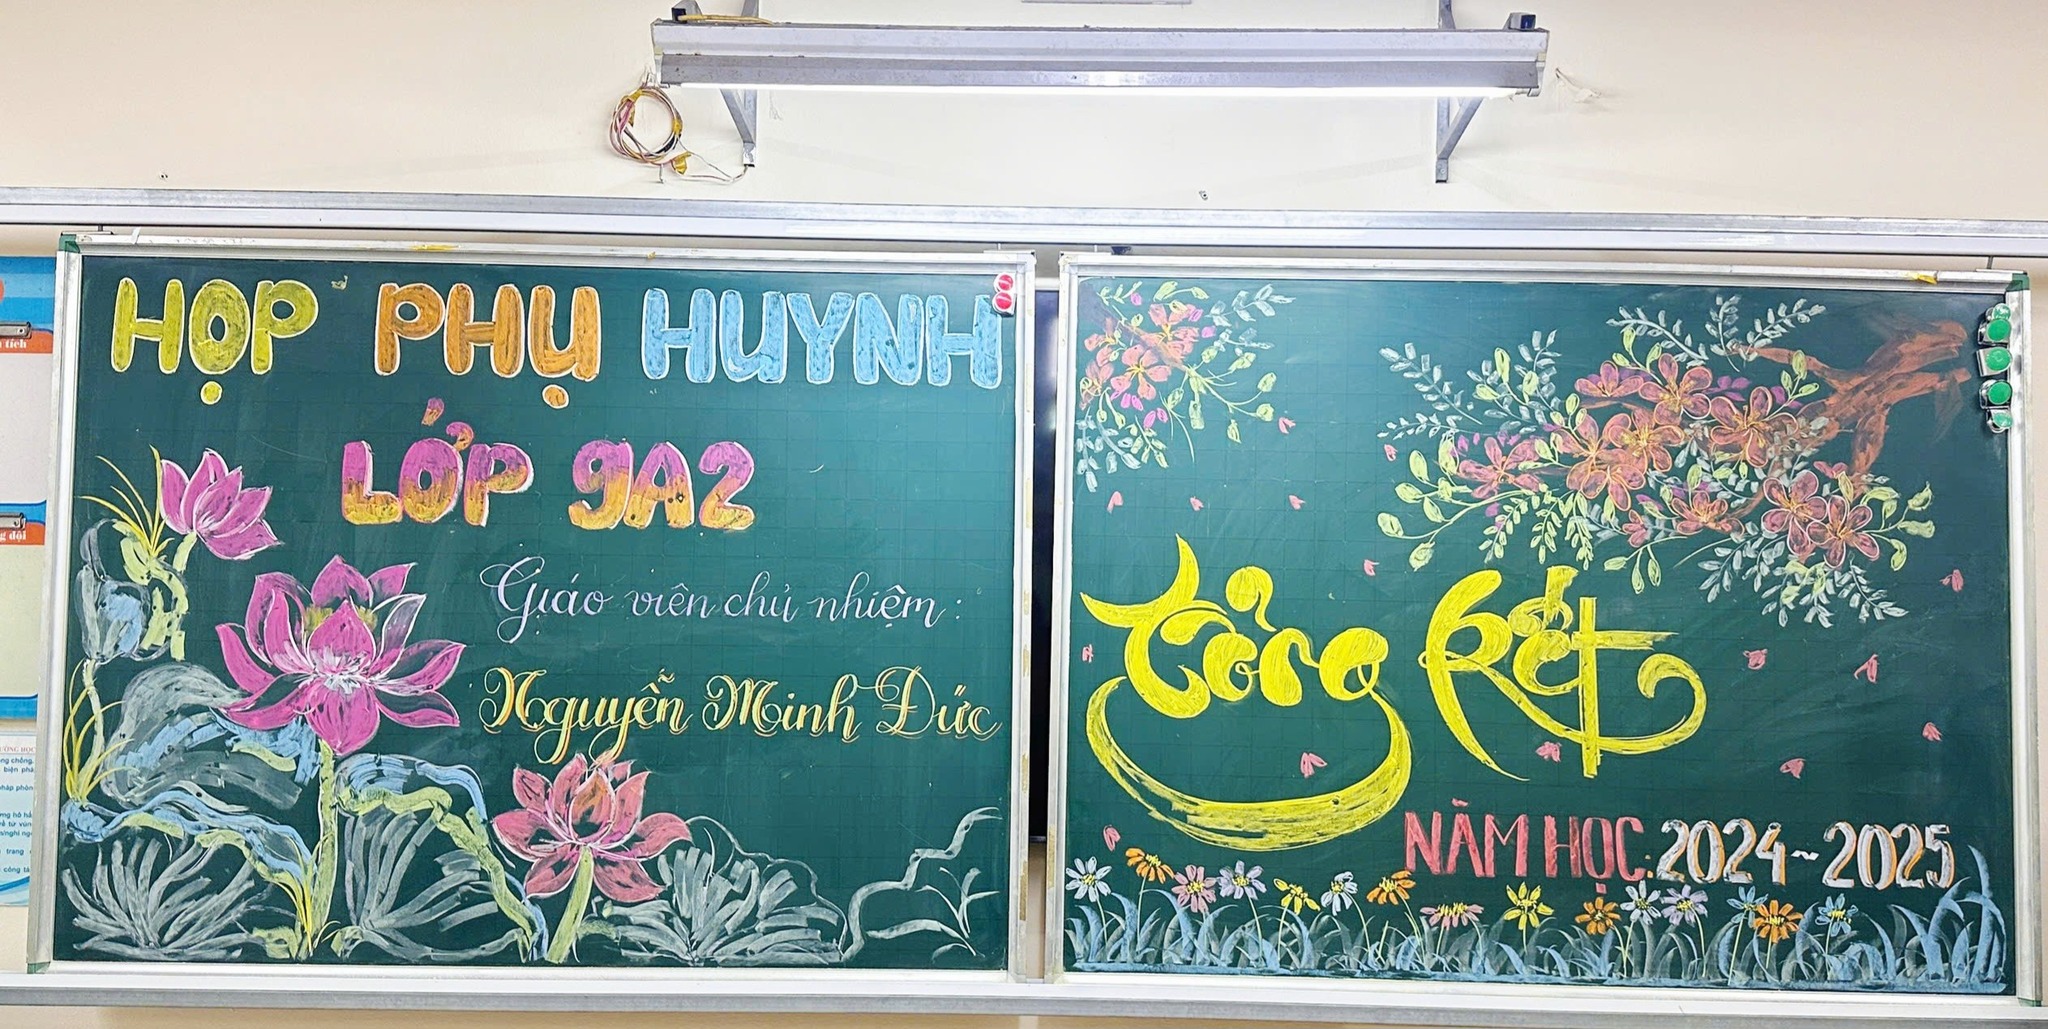 HỌP PHỤ HUYNH
LỚP 9A2
Giáo viên chủ nhiệm:
Nguyễn Minh Đức
Tổng kết
NĂM HỌC: 2024~2025
tích
g đội
ƯỜNG HỌC